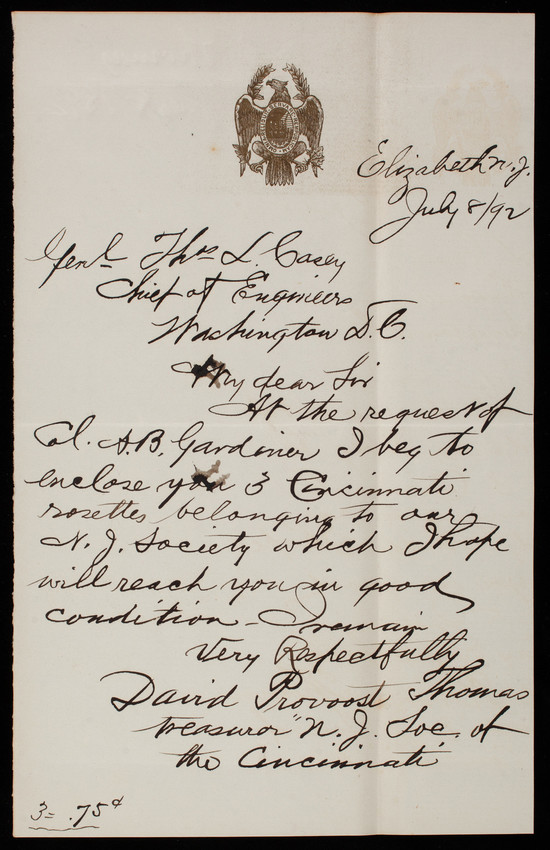 Elizabeth N. J.
July 8/92
Genl Thos L. Casey
Chief of Engineers
Washington D. C.
My dear Sir
At the request of
Col. A. B. Gardiner I beg to
enclose you 3 Cincinnati
rosettes belonging to our
N. J. Society which I hope
will reach you in good
condition - I remain
Very Respectfully
David Provoost Thomas
treasuror "N. J. Soc. of
the Cincinnati
3 = .75¢